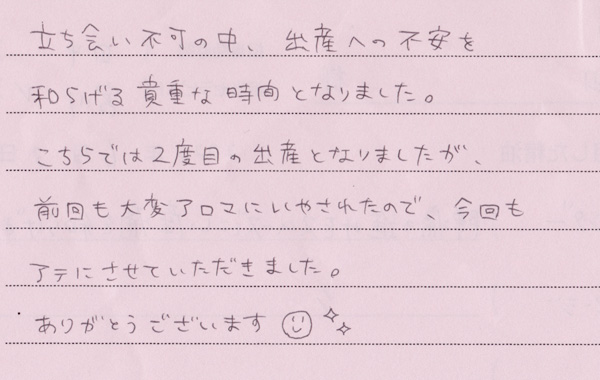 立ち会い不可の中、出産への不安を
和らげる貴重な時間となりました。
こちらでは2度目の出産となりましたが、
前回も大変アロマにいやされたので、今回も
アテにさせていただきました。
ありがとうございます